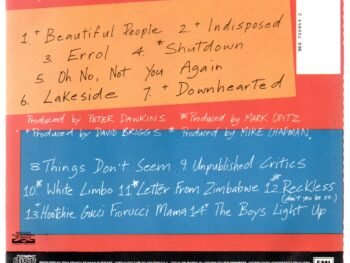 1 + Beautiful People 2 + Indisposed
3 Errol 4 *Shutdown
5 Oh No, Not You Again
6. Lakeside 7 + Downhearted
Produced by PETER DAWKINS * Produced by MARK OPITZ
+ Produced by DAVID BRIGGS * Produced by MIKE CHAPMAN.
8 Things Don't Seem 9 Unpublished Critics
10* White Limbo 11* Letter From Zimbabwe 12* Reckless
(don't you be so..)
13+ Hoochie Gucci Fiorucci Mama 14+ The Boys Light Up
COMPACT
disc
EMI